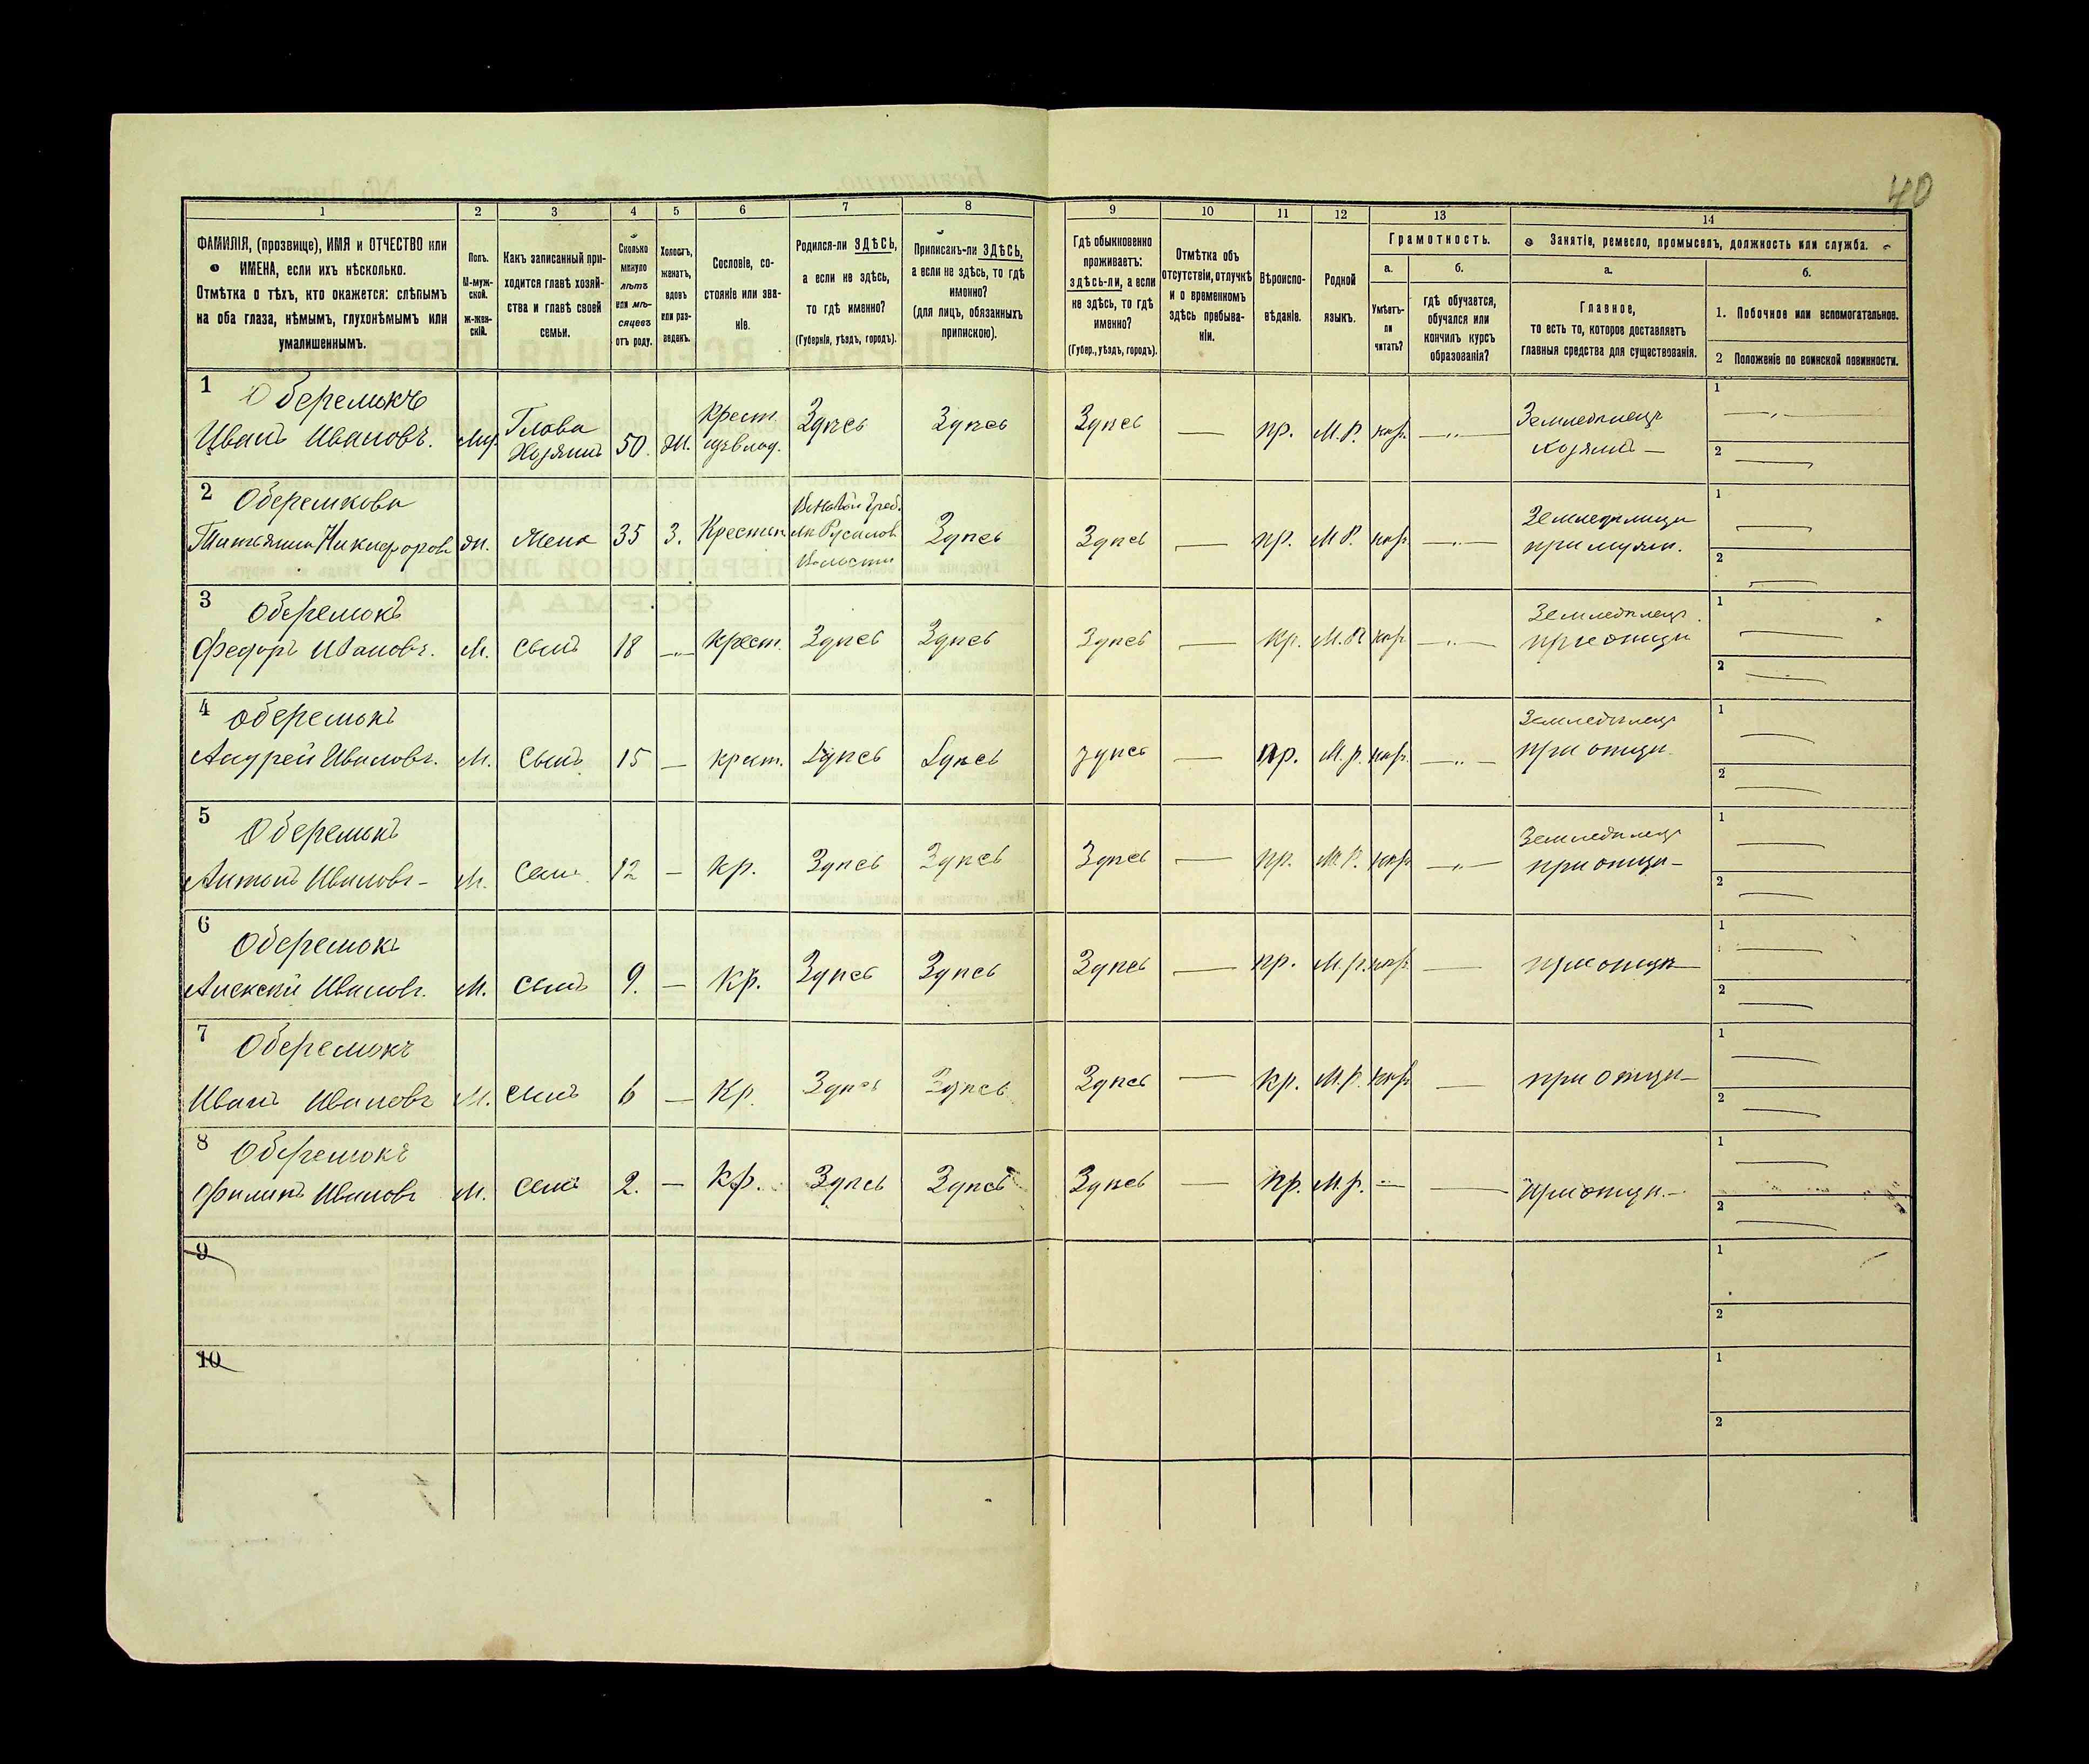 40
1 2 3 4 5 6 7 8 9 10 11 12 13 14
ФАМИЛІЯ, (прозвище), ИМЯ и ОТЧЕСТВО или
ИМЕНА, если ихъ нѣсколько.
Отмѣтка о тѣхъ, кто окажется: слѣпымъ
на оба глаза, нѣмымъ, глухонѣмымъ или
умалишеннымъ.
Полъ.
М-муж-
ской.
Ж-жен-
скій.
Какъ записанный при-
ходится главѣ хозяй-
ства и главѣ своей
семьи.
Сколько
минуло
лѣтъ
или мѣ-
сяцевъ
отъ роду.
Холостъ,
женатъ,
вдовъ
или раз-
веденъ.
Сословіе, со-
стояніе или зва-
ніе.
Родился-ли ЗДѢСЬ,
а если не здѣсь,
то гдѣ именно?
(Губернія, уѣздъ, городъ).
Приписанъ-ли ЗДѢСЬ,
а если не здѣсь, то гдѣ
именно?
(для лицъ, обязанныхъ
припискою).
Гдѣ обыкновенно
проживаетъ:
здѣсь-ли, а если
не здѣсь, то гдѣ
именно?
(Губер., уѣздъ, городъ).
Отмѣтка объ
отсутствіи, отлучкѣ
и о временномъ
здѣсь пребыва-
ніи.
Вѣроиспо-
вѣданіе.
Родной
языкъ.
Грамотность.
а.
Умѣетъ-
ли
читать?
б.
гдѣ обучается,
обучался или
кончилъ курсъ
образованія?
Занятіе, ремесло, промыселъ, должность или служба.
а.
Главное,
то есть то, которое доставляетъ
главныя средства для существованія.
б.
1. Побочное или вспомогательное.
2 Положеніе по воинской повинности.
1 Оберемокъ
Иванъ Ивановъ. Глава Хозяинъ 50. Ж. Крест. Здѣсь Здѣсь Здѣсь — пр. М.Р. — Земледѣлецъ Хозяинъ — 1 — 2 —
2 Оберемкова
Татьяна Никифорова ж. Жена 35 З. Крестьян. Волости Здѣсь Здѣсь — пр. М.Р. — Земледѣлица при мужи. 1 — 2 —
3 Оберемокъ
Федоръ Ивановъ. М. Сынъ 18 — Крест. Здѣсь Здѣсь Здѣсь — М.Р. — Земледѣлецъ при отцѣ 1 — 2 —
4 Оберемокъ
Андрей Ивановъ. М. Сынъ 15 — крест. Здѣсь Здѣсь Здѣсь — пр. М.р. — Земледѣлецъ при отцѣ. 1 — 2 —
5 Оберемокъ
Антонъ Ивановъ — М. Сынъ 12 — кр. Здѣсь Здѣсь Здѣсь — пр. М.Р. — Земледѣлецъ при отцѣ — 1 — 2 —
6 Оберемокъ
Алексѣй Ивановъ. М. Сынъ 9. — Кр. Здѣсь Здѣсь Здѣсь — пр. М.р. — при отцѣ — 1 — 2 —
7 Оберемокъ
Иванъ Ивановъ М. сынъ 6 — Кр. Здѣсь Здѣсь Здѣсь — М.Р. — при отцѣ — 1 — 2 —
8 Оберемокъ
Филипъ Ивановъ М. сынъ 2. — Кр. Здѣсь Здѣсь Здѣсь — пр. М.р. — — при отцѣ. — 1 — 2 —
9 1 2
10 1 2